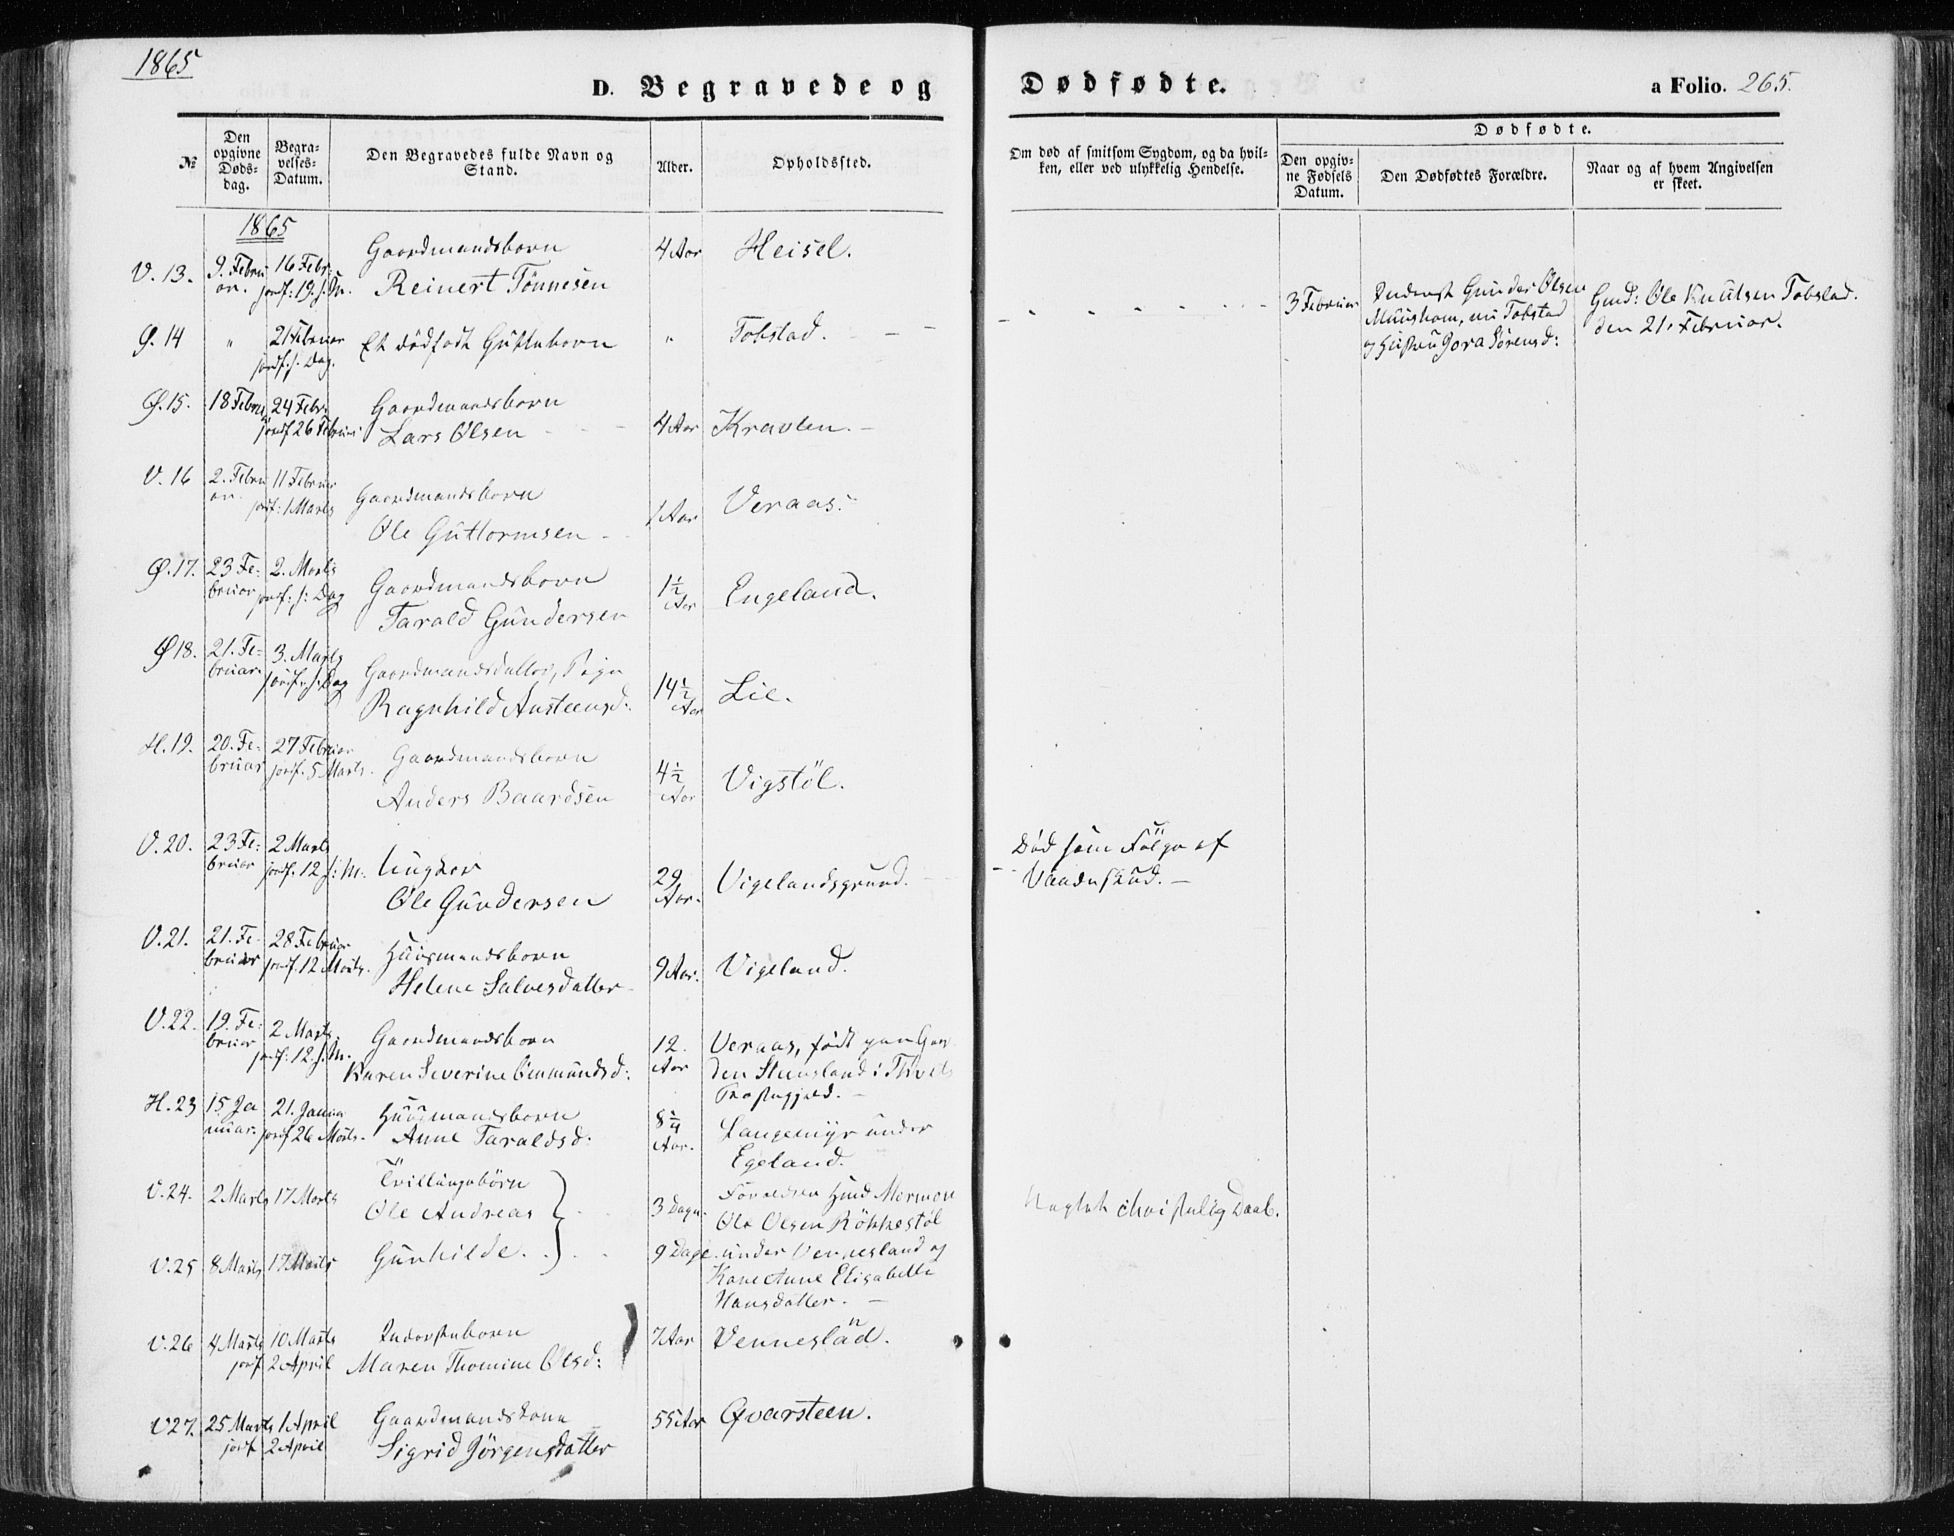 1865
D. Begravede og Dødfødte.
a Folio. 265.
№
Den opgivne Døds-dag.
Begra-velses-Datum.
Den Begravedes fulde Navn og Stand.
Alder.
Opholdssted.
Om død af smitsom Sygdom, og da hvil-ken, eller ved ulykkelig Hendelse.
Dødfødte.
Den opgiv-ne Fødsels Datum.
Den Dødfødtes Forældre.
Naar og af hvem Angivelsen er skeet.
1865
V. 13. 9. Febru ar. 16 Febr. jordf: 19. s. M. Gaardmandsbarn 4 Aar Heisel.
Reinert Tönnesen
Ø. 14 " 21 Februar jordf. s. Dag. Et dödfödt Guttebarn " Tobstad.
3 Februar Inderst Gunder Olsen
Muusham, nu Tobstad
og Hustru Gora Sörensd:
Gmd: Ole Knutsen Tobstad.
den 21. Februar.
Ø. 15. 18 Febru 24 Febr. jordf 26 Februar Gaardmandsbarn
Lars Olsen 4 Aar Kravlen.
V. 16 2. Febru ar. 11 Februar jordf: 1 Marts Gaardmandsbarn
Ole Guttormsen 1 Aar Veraas.
Ø. 17. 23 Fe-bruar 2. Marts jordf: s: Dag Gaardmandsbarn
Tarald Gundersen 1½ Aar Engeland.
Ø 18. 21. Fe-bruar. 3. Marts jordf. s. Dag Gaardmandsdatter, Pige
Ragnhild Austeensd: 14½ Aar Lie.
H. 19. 20. Fe-bruar 27 Februar jordf. 5 Marts. Gaardmandsbarn
Anders Baardsen 4½ Aar Vigstöl.
V. 20. 23 Fe-bruar 2 Marts jordf. 12 s: M. Ungkar
Ole Gundersen 29 Aar. Vigelandsgrund.
Död som Fölge af
Vaadeskud.
V. 21. 21. Fe-bruar 28 Februar jordf. 12 Marts. Huusmandsbarn
Helene Salvesdatter 9 Aar. Vigeland.
V. 22. 19. Fe-bruar 2 Marts. jordf: 12. s. M. Gaardmandsbarn
Karen Severine Ommundsd: 12. Aar Veraas, födt paa Gaar
den Steensland i Thveits
Præstegjeld.
H. 23 15. Ja nuar. 21. Janua jordf 26 Marts. Huusmandsbarn
Anne Taraldsd: 8 Aar. Langemyr under
Egeland.
V. 24. 2 Marts 17 Marts Tvillingebörn
Ole Andreas 3 Dage. Forældre Hmd Mermon
Ole Olsen Rökkestöl
Nægtet christelig Daab.
V. 25 8 Marts 17 Marts Gunhilde. 9 Dage. under Vennesland og
Kone Anne Elisabeth
Hansdatter.
V. 26 4 Marts 10 Marts jordf 2 April Inderstebarn
Maren Thomine Olsd: 7 Aar Venneslad.
V 27. 25 Marts 1 April jordf 2 April Gaardmandskone
Sigrid Jörgensdatter 55 Aar Qvarsteen.